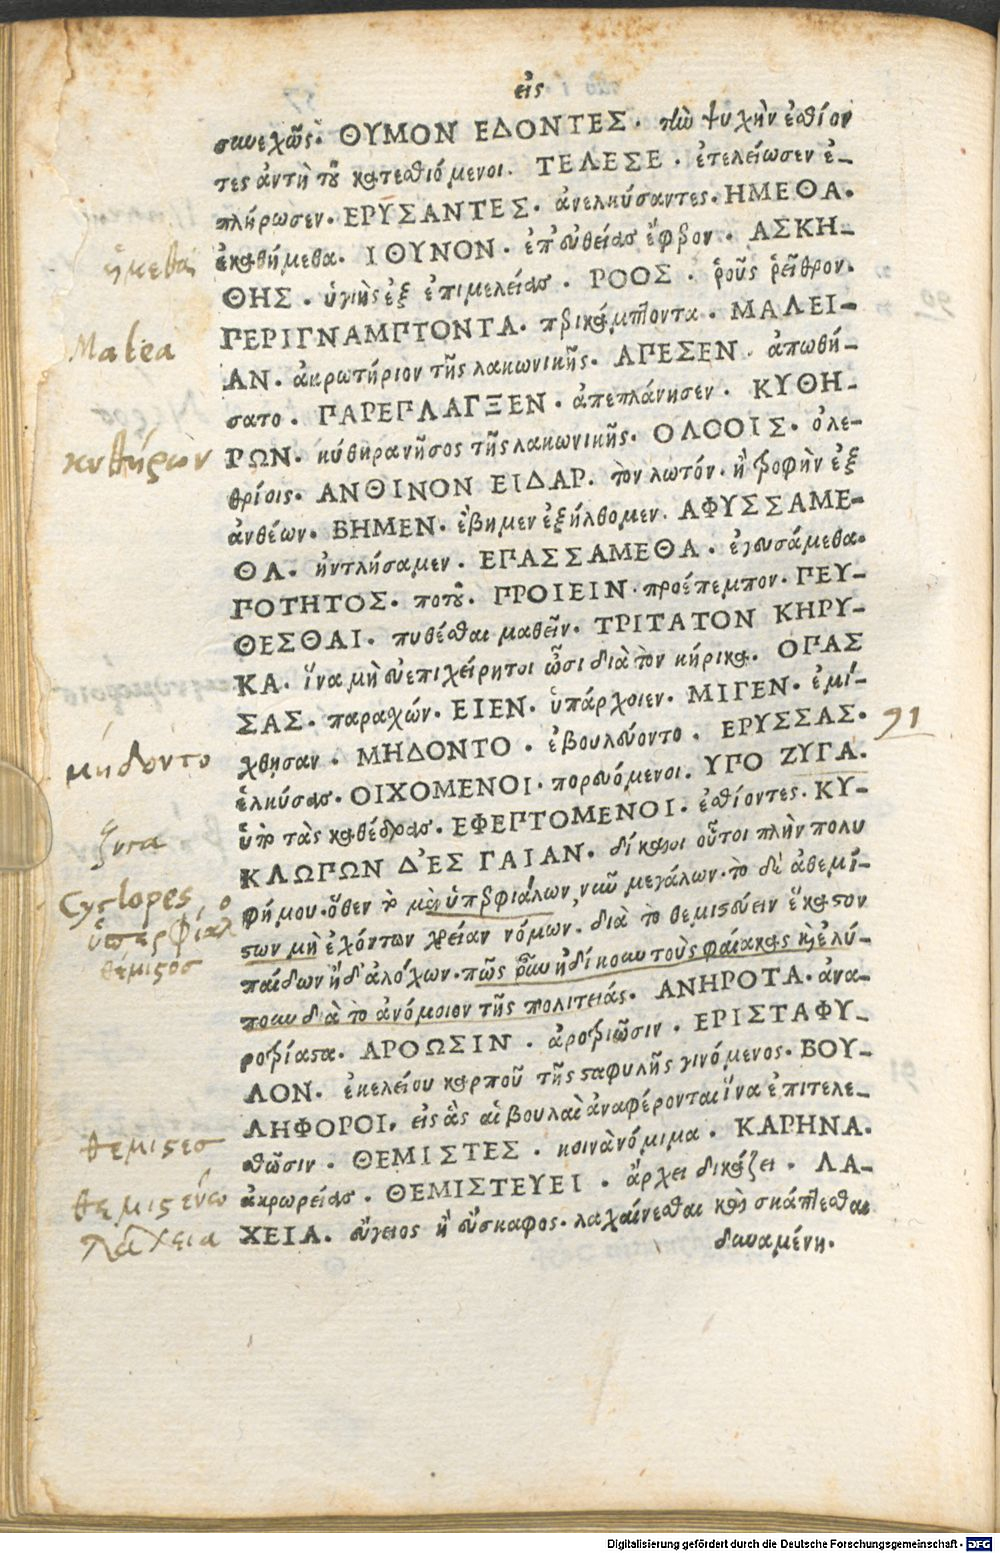 εἰς
συνεχῶς. ΘΥΜΟΝ ΕΔΟΝΤΕΣ. τὴν ψυχὴν ἐσθίον
τες ἀντὶ τοῦ κατεσθιόμενοι. ΤΕΛΕΣΕ. ἐτελείωσεν ἐ-
πλήρωσεν. ΕΡΥΣΑΝΤΕΣ. ἀνελκύσαντες. ΗΜΕΘΑ.
ἐκαθήμεθα. ΙΘΥΝΟΝ. ἐπ' εὐθείας ἔφερον. ΑΣΚΗ-
ΘΗΣ. ὑγιὴς ἐξ ἐπιμελείας. ΡΟΟΣ. ῥοῦς ῥεῖθρον.
ΠΕΡΙΓΝΑΜΠΤΟΝΤΑ. περικάμπτοντα. ΜΑΛΕΙ-
ΑΝ. ἀκρωτήριον τῆς λακωνικῆς. ΑΠΕΣΕΝ. ἀπωθή-
σατο. ΠΑΡΕΠΛΑΓΞΕΝ. ἀπεπλάνησεν. ΚΥΘΗ-
ΡΩΝ. κύθηρα νῆσος τῆς λακωνικῆς. ΟΛΟΟΙΣ. ὀλε-
θρίοις. ΑΝΘΙΝΟΝ ΕΙΔΑΡ. τὸν λωτόν. ἢ τροφὴν ἐξ
ἀνθέων. ΒΗΜΕΝ. ἐβημεν ἐξήλθομεν. ΑΦΥΣΣΑΜΕ-
ΘΑ. ἠντλήσαμεν. ΕΠΑΣΣΑΜΕΘΑ. ἐγευσάμεθα.
ΠΟΤΗΤΟΣ. ποτοῦ. ΠΡΟΙΕΙΝ. προέπεμπον. ΠΕΥ-
ΘΕΣΘΑΙ. πυθέσθαι μαθεῖν. ΤΡΙΤΑΤΟΝ ΚΗΡΥ-
ΚΑ. ἵνα μὴ εὐεπιχείρητοι ὦσι διὰ τὸν κήρικα. ΟΠΑΣ
ΣΑΣ. παραχών. ΕΙΕΝ. ὑπάρχοιεν. ΜΙΓΕΝ. ἐμί-
χθησαν. ΜΗΔΟΝΤΟ. ἐβουλεύοντο. ΕΡΥΣΣΑΣ.
ἑλκύσας. ΟΙΧΟΜΕΝΟΙ. πορευόμενοι. ΥΠΟ ΖΥΓΑ.
ὑπὸ τὰς καθέδρας. ΕΦΕΠΤΟΜΕΝΟΙ. ἐσθίοντες. ΚΥ-
ΚΛΩΠΩΝ Δ'ΕΣ ΓΑΙΑΝ. δίκαιοι οὗτοι πλὴν πολυ
φήμου. ὅθεν τὸ μὲν ὑπερφιάλων, νῦν μεγάλων. τὸ δὲ ἀθεμί-
στων μὴ ἐχόντων χρείαν νόμων. διὰ τὸ θεμιστεύειν ἕκαστον
παίδων ἠδ' ἀλόχων. πῶς οὖν ἠδίκουν τοὺς φαίακας καὶ ἐλύ-
πουν διὰ τὸ ἀνόμοιον τῆς πολιτειάς. ΑΝΗΡΟΤΑ. ἀνα-
ροτρίαστα. ΑΡΟΩΣΙΝ. ἀροτριῶσιν. ΕΡΙΣΤΑΦΥ-
ΛΟΝ. ἐκελείου καρποῦ τῆς σταφυλῆς γινόμενος. ΒΟΥ-
ΛΗΦΟΡΟΙ. εἰς ἃς αἱ βουλαὶ ἀναφέρονται ἵνα ἐπιτελε-
σθῶσιν. ΘΕΜΙΣΤΕΣ. κοινὰ νόμιμα. ΚΑΡΗΝΑ.
ἀκρωρείας. ΘΕΜΙΣΤΕΥΕΙ. ἄρχει δικάζει. ΛΑ-
ΧΕΙΑ. εὔγειος ἢ εὔσκαφος. λαχαίνεσθαι καὶ σκάπτεσθαι
δυναμένη.
Malea
κυθήρων
μήδοντο
ζυγα
Cyclopes, ο
θέμιστος
θεμιστες
λάχεια
91
Digitalisierung gefördert durch die Deutsche Forschungsgemeinschaft - DFG